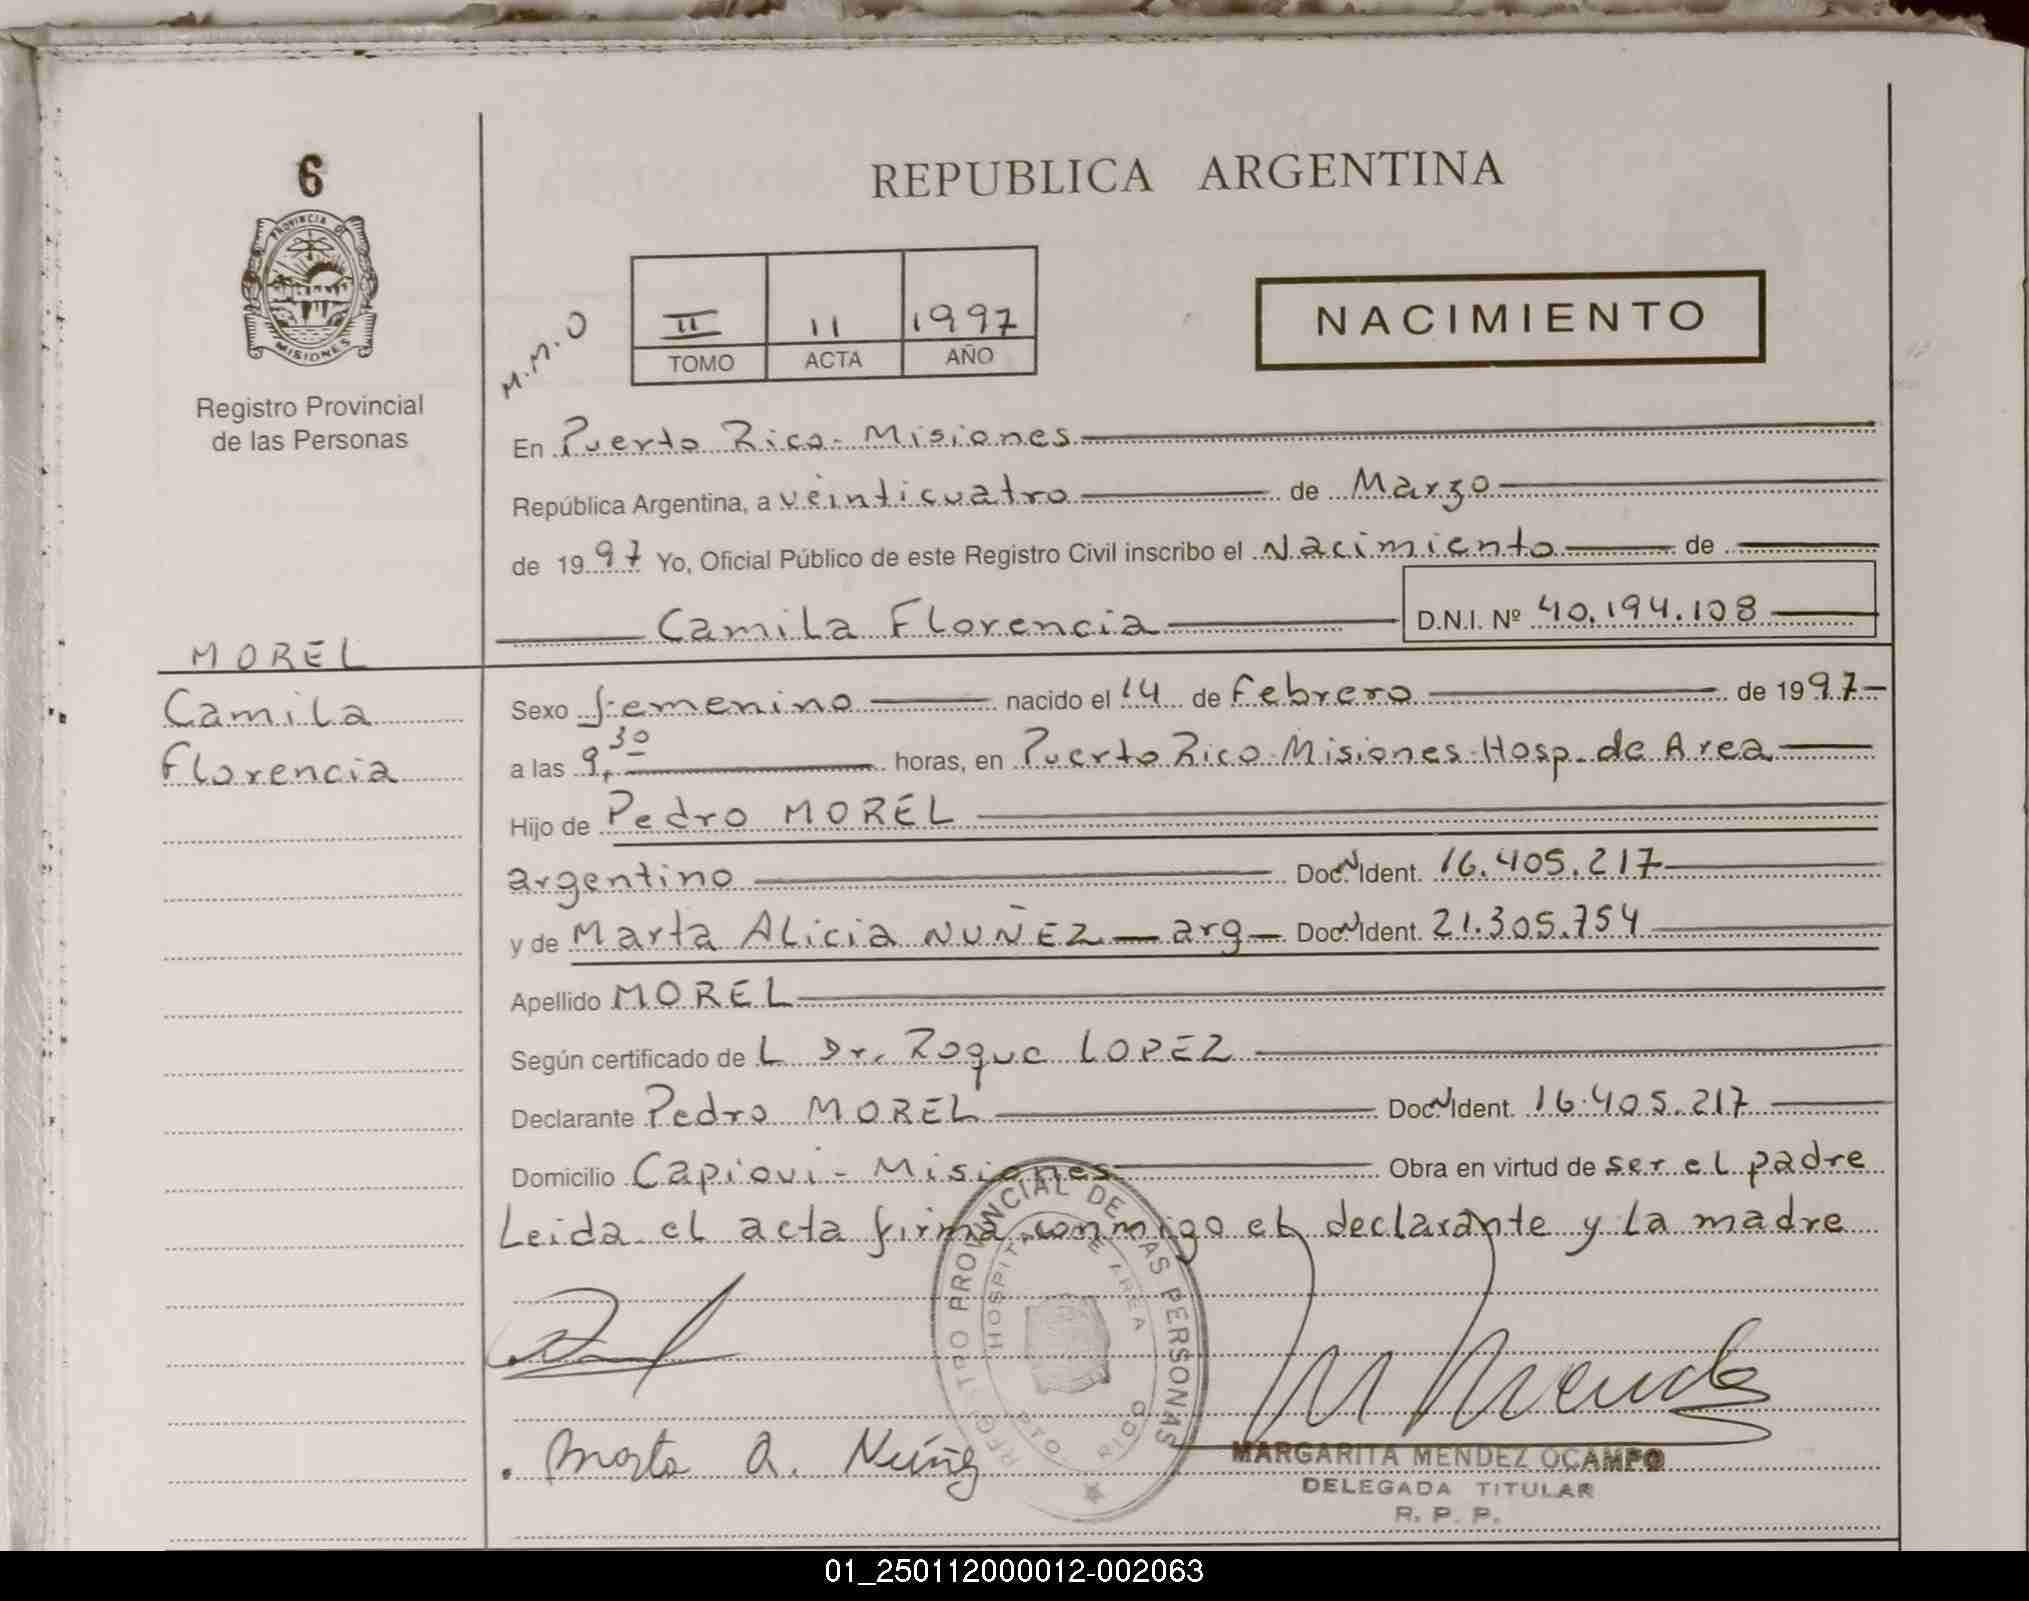 6
PROVINCIA DE
MISIONES
Registro Provincial
de las Personas
REPUBLICA ARGENTINA
M.M.O
II 11 1997
TOMO ACTA AÑO
NACIMIENTO
En Puerto Rico - Misiones
República Argentina, a veinticuatro de Marzo
de 1997 Yo, Oficial Público de este Registro Civil inscribo el Nacimiento de
Camila Florencia D.N.I. Nº 40.194.108
MOREL
Camila
Florencia
Sexo femenino nacido el 14 de Febrero de 1997
a las 9,30 horas, en Puerto Rico - Misiones - Hosp. de Area
Hijo de Pedro MOREL
argentino Doc. N Ident. 16.405.217
y de Marta ALicia NUÑEZ - arg - Doc. N Ident. 21.305.754
Apellido MOREL
Según certificado de L Dr. Roque LOPEZ
Declarante Pedro MOREL Doc. N Ident. 16.405.217
Domicilio Capiovi - Misiones Obra en virtud de ser el padre
Leida el acta firma conmigo el declarante y la madre
REGISTRO PROVINCIAL DE LAS PERSONAS
HOSPITAL DE AREA
PTO RICO
M Mendez
Marta A. Núñez
MARGARITA MENDEZ OCAMPO
DELEGADA TITULAR
R. P. P.
01_250112000012-002063